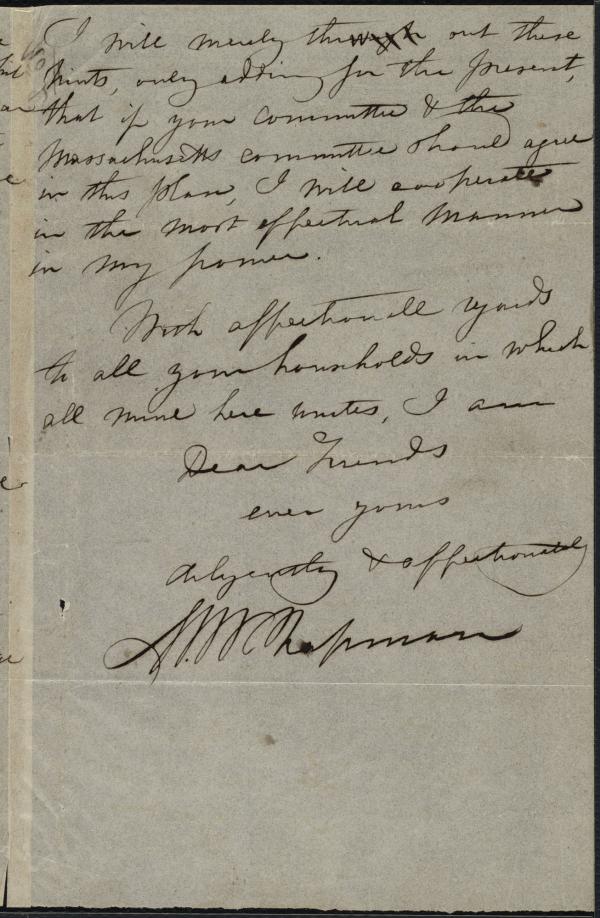 I will merely throw out these
hints, only adding for the present,
that if your committee & the
Massachusetts committee should agree
in this plan, I will cooperate
in the most effectual manner
in my power.
With affectionate regards
to all your households in which
all mine here unites, I am
Dear Friends
ever yours
diligently & affectionately
M. W. Chapman